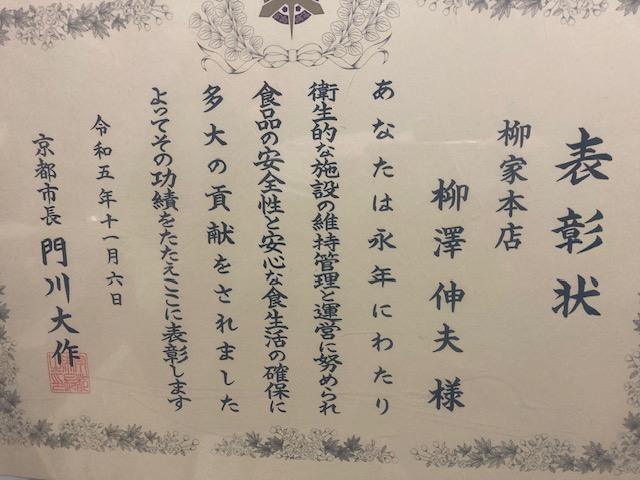 表彰状
柳家本店
柳澤伸夫様
あなたは永年にわたり
衛生的な施設の維持管理と運営に努められ
食品の安全性と安心な食生活の確保に
多大の貢献をされました
よってその功績をたたえここに表彰します
令和五年十一月六日
京都市長 門川大作